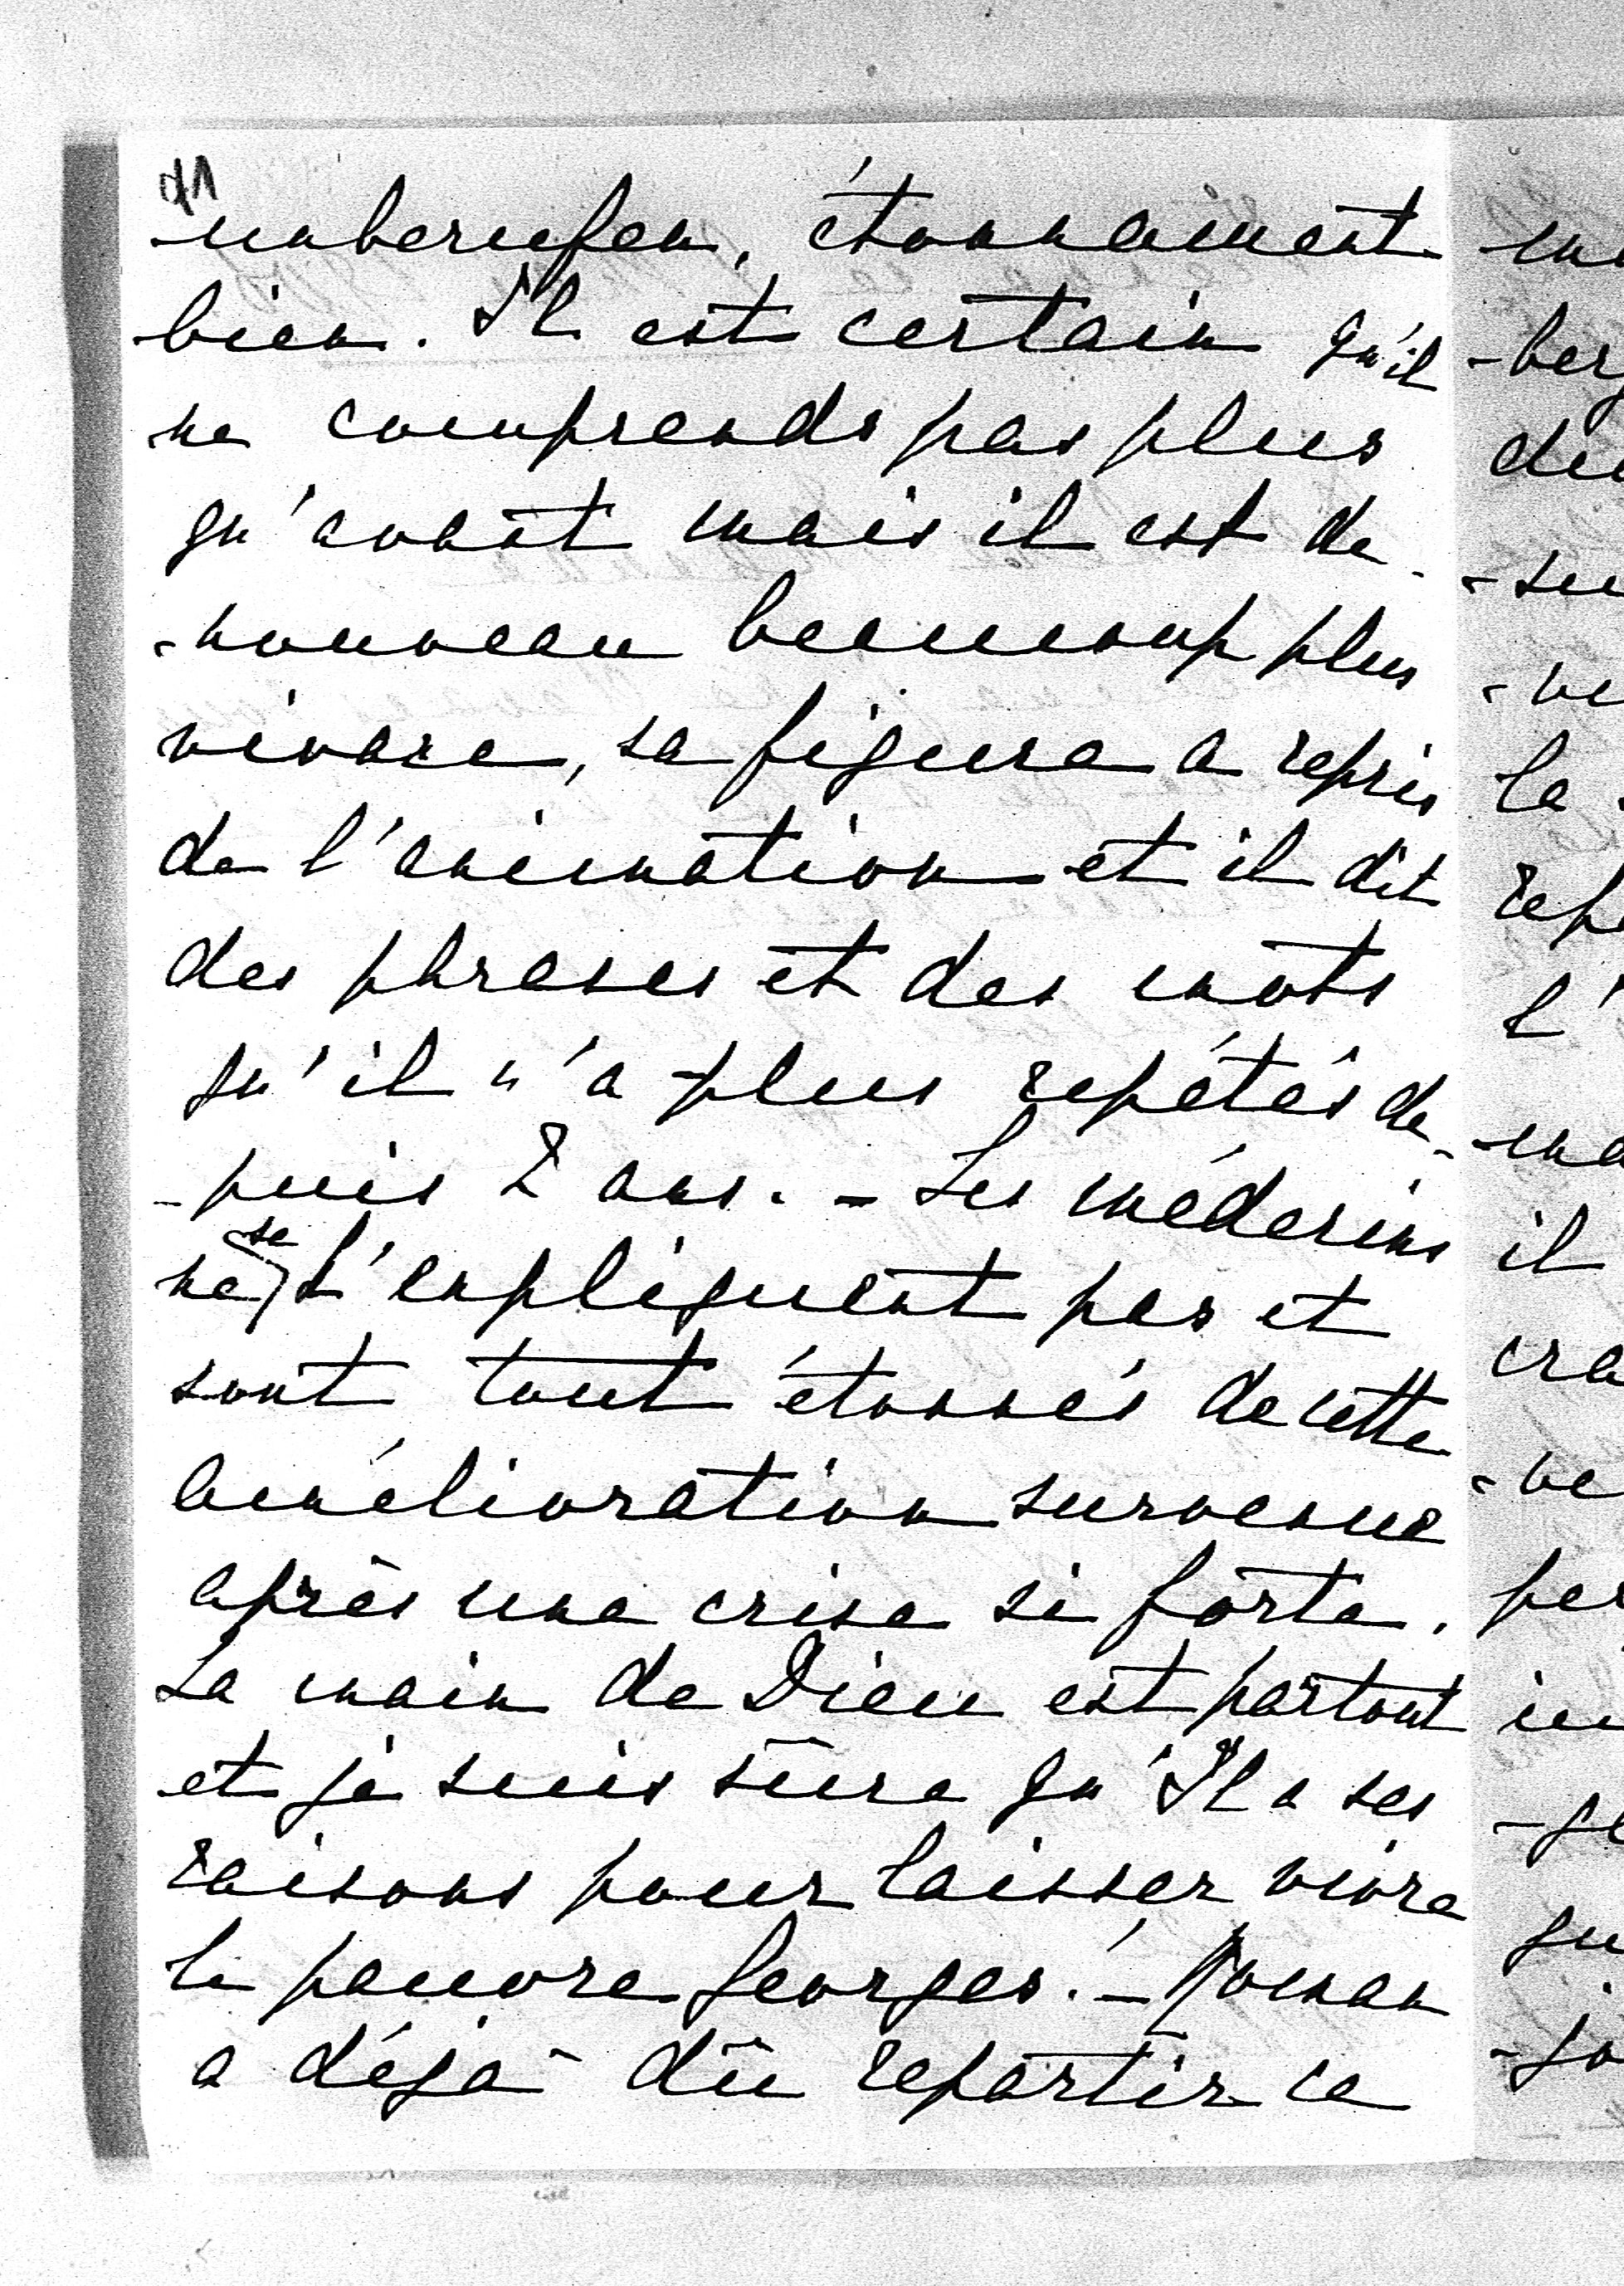 unberufen, étonnament
bien. Il est certain qu'il
ne comprends pas plus
qu'avant mais il est de
-nouveau beaucoup plus
vivace, sa figure a repris
de l'animation et il dit
des phrases et des mots
qu'il n'a plus repétés de-
-puis 2 ans. - Les médecins
ne se l'expliquent pas et
sont tout étonnés de cette
amélioration survenue
après une crise si forte.
La main de Dieu est partout
et je suis sûre qu'Il a ses
raisons pour laisser vivre
le pauvre Georges. - Roman
a déjà dû repartir ce